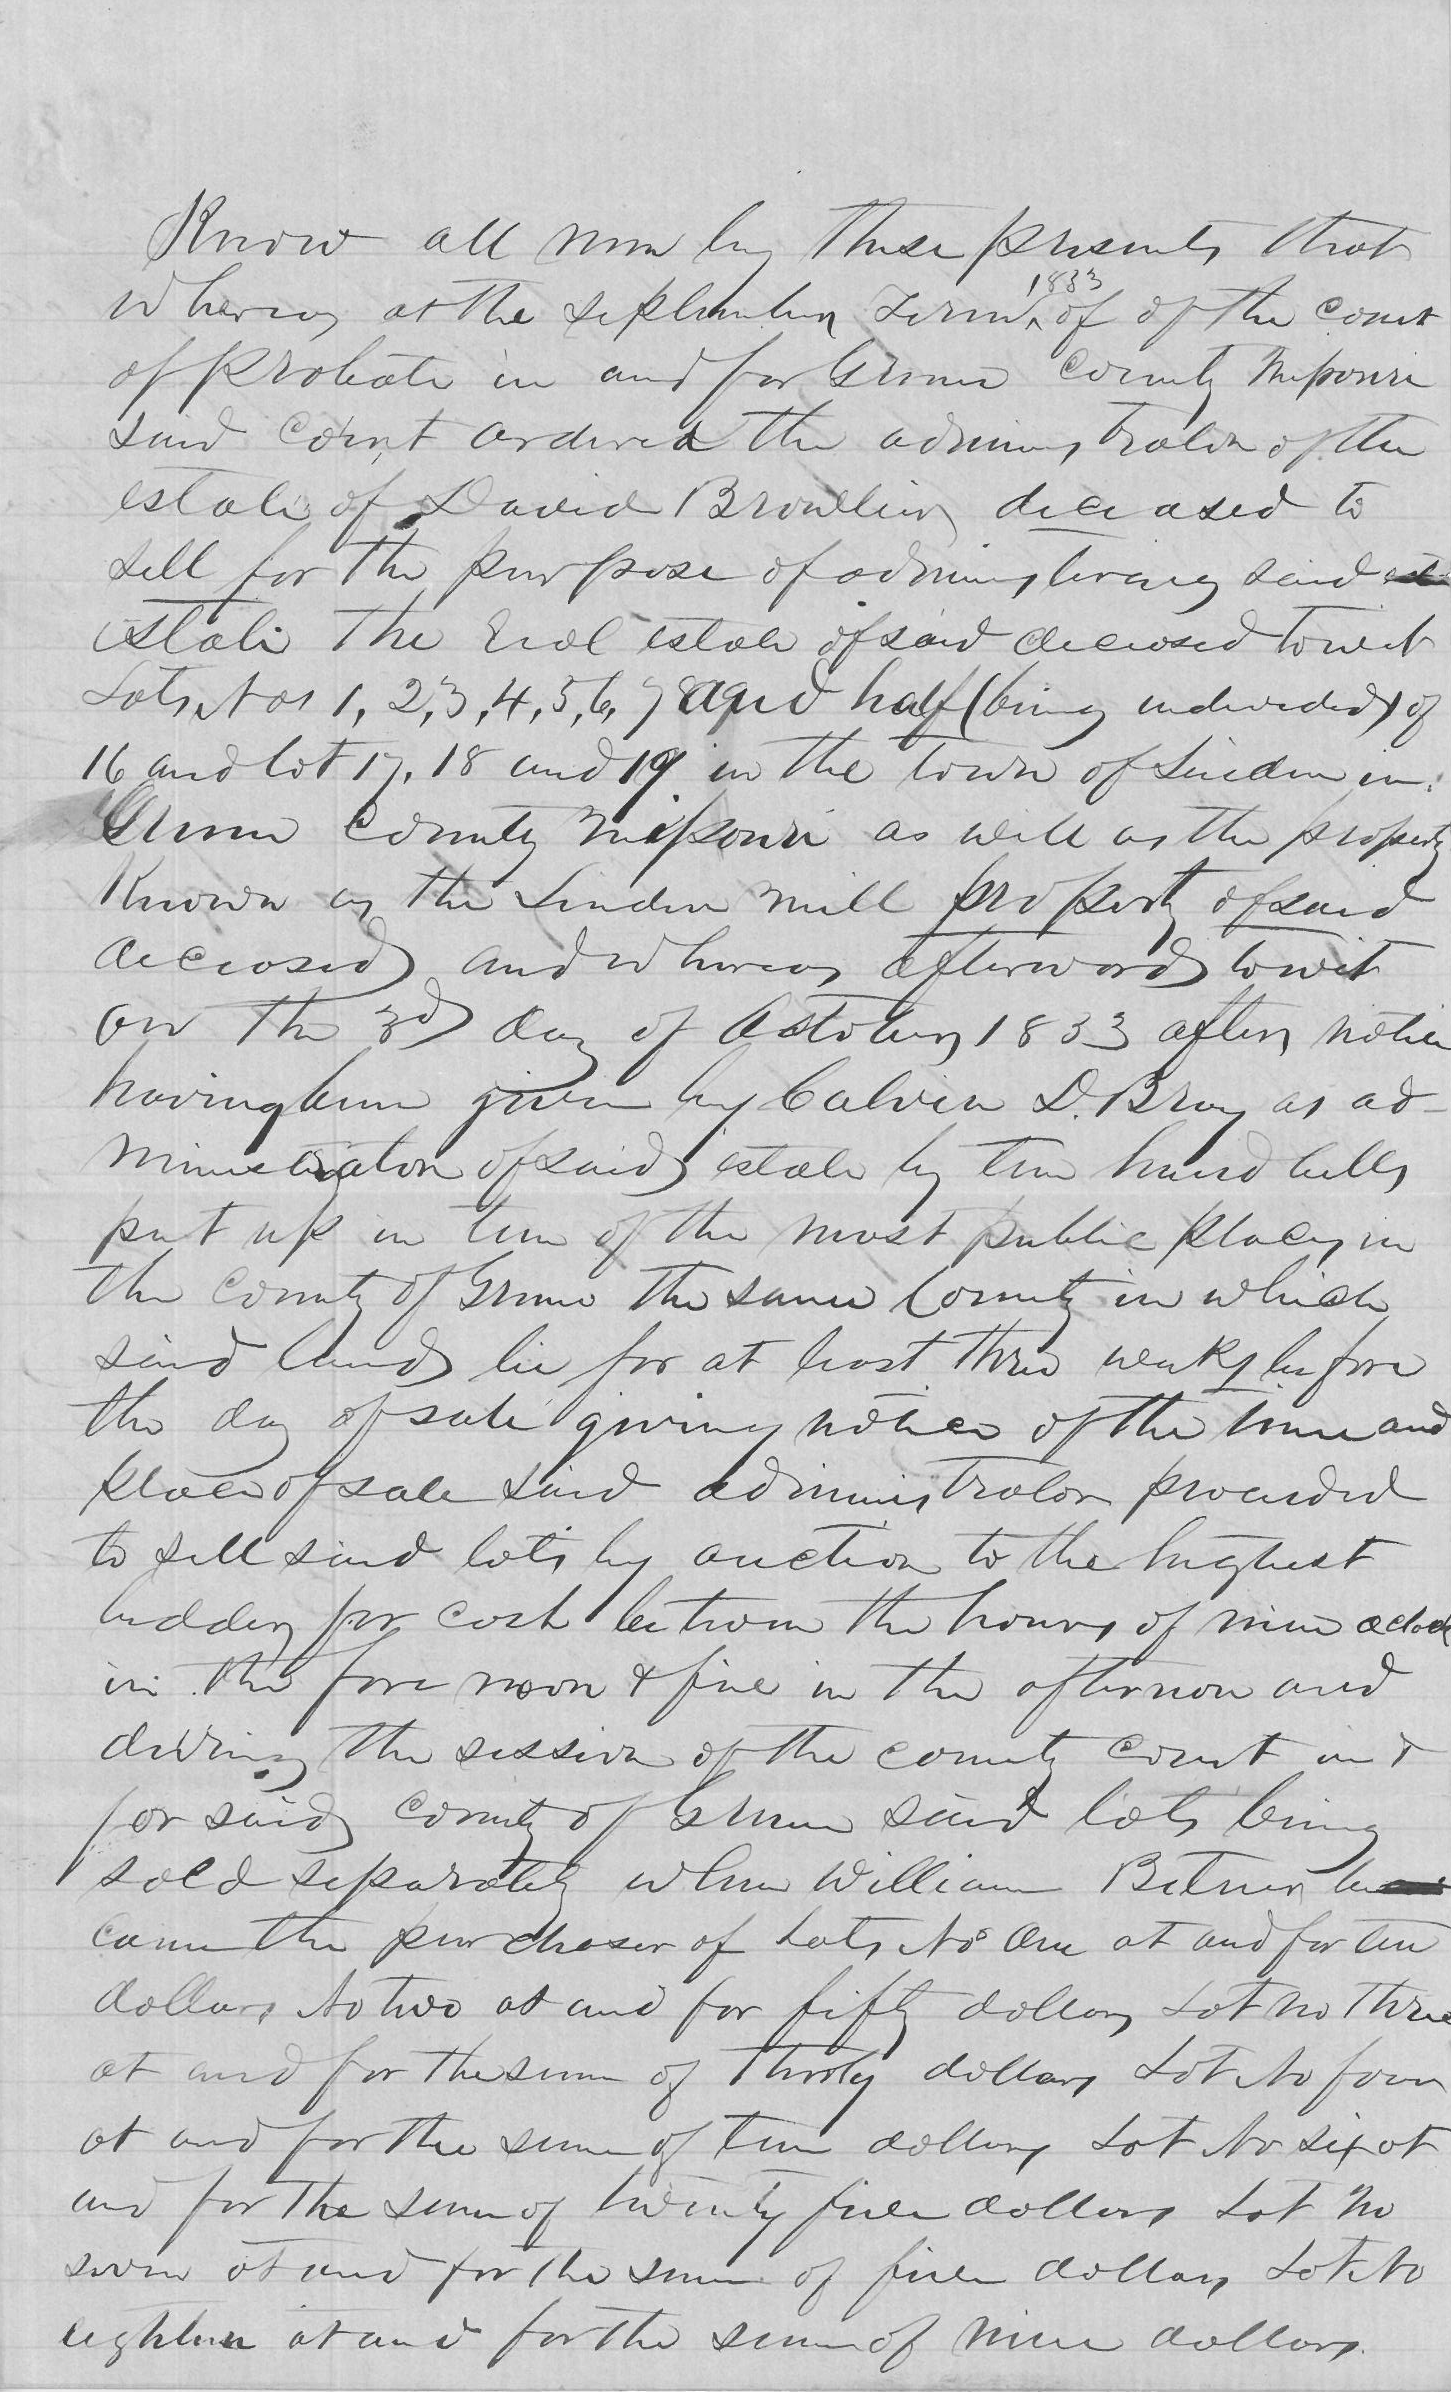 Know all men by these presents that
whereas at the september Term 1833 of of the court
of probate in and for Greene County Missouri
said court ordered the administrator of the
estate of David deceased to
sell for the purpose of administering said
estate the real estate of said deceased towit
Lots Nos 1, 2, 3, 4, 5, 6, 7 and half (being undivided) of
16 and lot 17, 18 and 19 in the town of Linden in
Greene County Missouri as well as the property
Known as the Linden mill property of said
deceased and whereas afterwards towit
on the 3rd day of October 1833 after notice
having been given by Calvin D. Bray as ad-
ministrator of said estate by ten hand bills
put up in ten of the most public places in
the county of Greene the same County in which
said lands lie for at least three weeks before
the day of sale giving notice of the time and
place of sale said administrator proceeded
to sell said lots by auction to the highest
bidder for cash between the hours of nine oclock
in the fore noon & five in the afternoon and
during the session of the county court in &
for said county of Greene said lots being
sold separately when William Bitner be
came the purchaser of Lots No One at and for ten
dollars No two at and for fifty dollars Lot No three
at and for the sum of thirty dollars Lot No four
at and for the sum of ten dollars Lot No six at
and for the sum of twenty five dollars Lot No
seven at and for the sum of five dollars Lot No
eighteen at and for the sum of nine dollars.